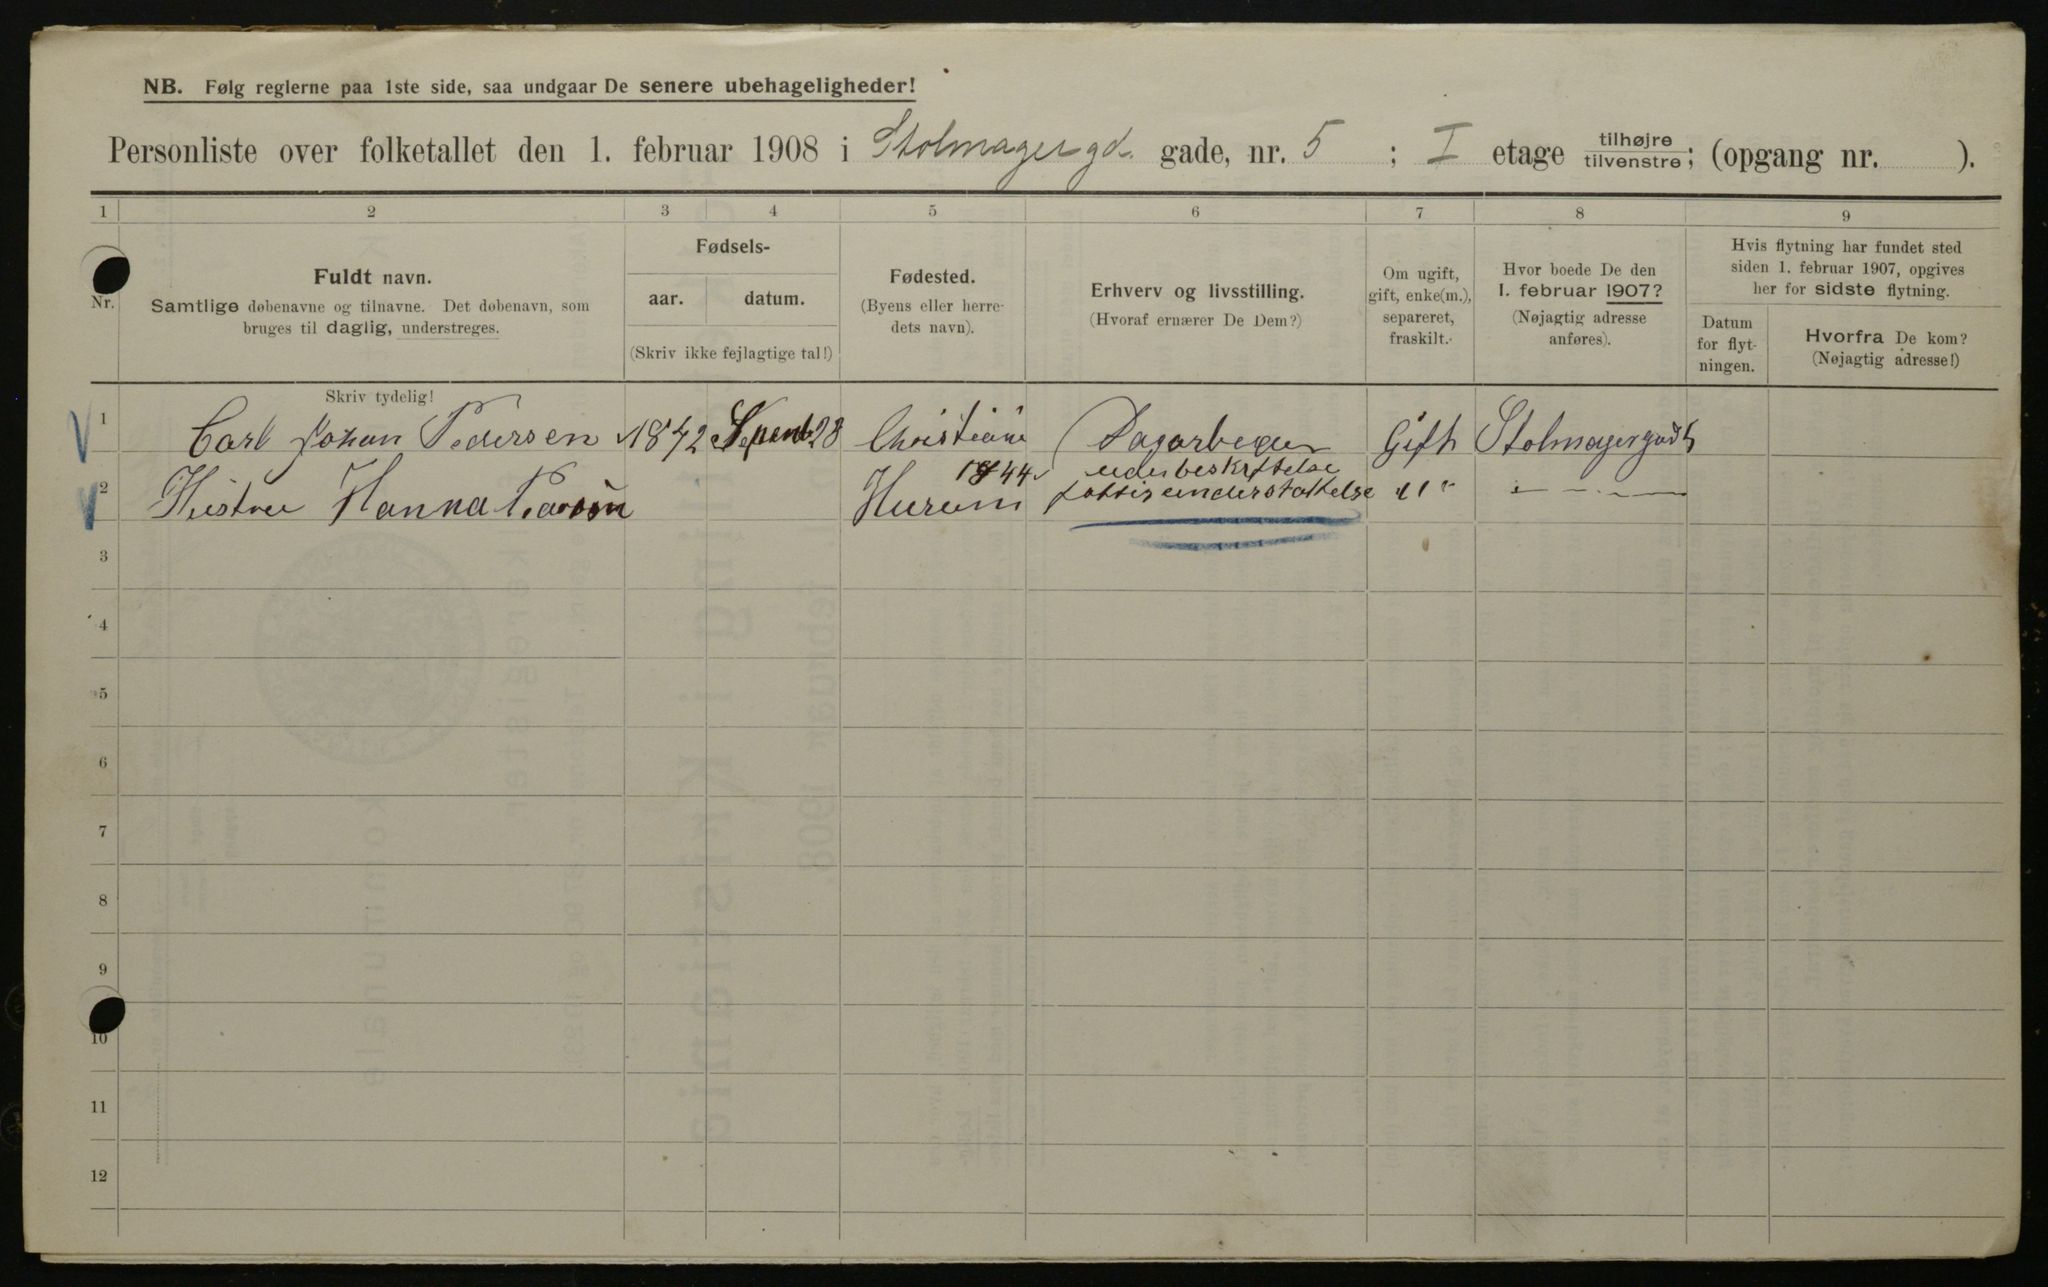 NB. Følg reglerne paa 1ste side, saa undgaar De senere ubehageligheder!
Personliste over folketallet den 1. februar 1908 i Stolmagergd. gade, nr. 5 ; I etage tilhøjre tilvenstre; (opgang nr. ).
1 2 3 4 5 6 7 8 9
Nr.
Fuldt navn.
Samtlige døbenavne og tilnavne. Det døbenavn, som
bruges til daglig, understreges.
Skriv tydelig!
Fødsels-
aar. datum.
(Skriv ikke fejlagtige tal!)
Fødested.
(Byens eller herre-
dets navn).
Erhverv og livsstilling.
(Hvoraf ernærer De Dem?)
Om ugift,
gift, enke(m.),
separeret,
fraskilt.
Hvor boede De den
1. februar 1907?
(Nøjagtig adresse
anføres).
Hvis flytning har fundet sted
siden 1. februar 1907, opgives
her for sidste flytning.
Datum
for flyt-
ningen.
Hvorfra De kom?
(Nøjagtig adresse!)
1 Carl Johan Pedersen 1842 28 Gift Stolmagergad 5
1844
2 Hustru Hanna Hurum " "
3
4
5
6
7
8
9
10
11
12